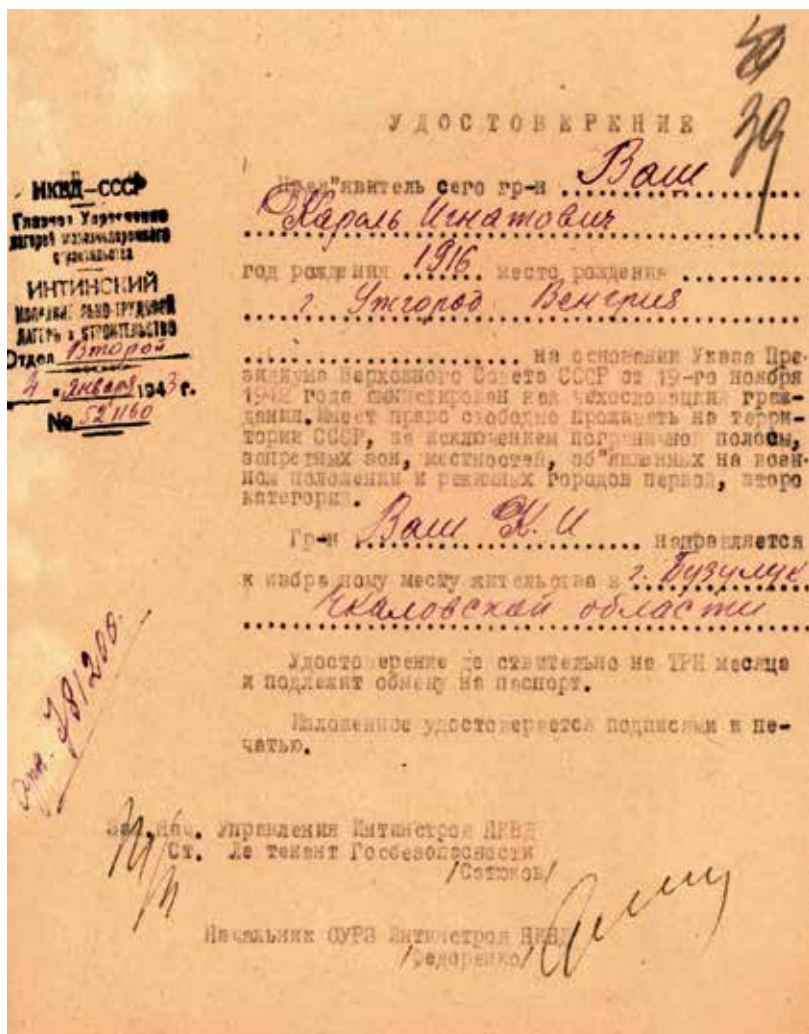 39
УДОСТОВЕРЕНИЕ
НКВД-СССР
Главное Управление
лагерей железнодорожного
строительства
ИНТИНСКИЙ
ИСПРАВИТЕЛЬНО-ТРУДОВОЙ
ЛАГЕРЬ и СТРОИТЕЛЬСТВО
Отдел Второй
4 " января 1943 г.
№ 521160
Пред"явитель сего гр-н Ваш
Кароль Игнатович
год рождения 1916 место рождения
г. Ужгород Венгрия
на основании Указа Пре-
зидиума Верховного Совета СССР от 19-го ноября
1942 года амнистирован как чехословацкий граж-
данин. Имеет право свободно проживать на терри-
тории СССР, за исключением пограничной полосы,
запретных зон, местностей, об"явленных на воен-
ном положении и режимных городов первой, второ
категории.
Гр-н Ваш К. И направляется
к избра ному месту жительства в г. Бузулук
Чкаловской области
Удостоверение де ствительно на ТРИ месяца
и подлежит обмену на паспорт.
Изложенное удостоверяется подписями и пе-
чатью.
781200.
Зам.Нач. Управления Интинстроя НКВД
Ст. Ле тенант Госбезопасности
/Сатюков/
Начальник ОУРЗ Интинстроя НКВД
/Федоренко/